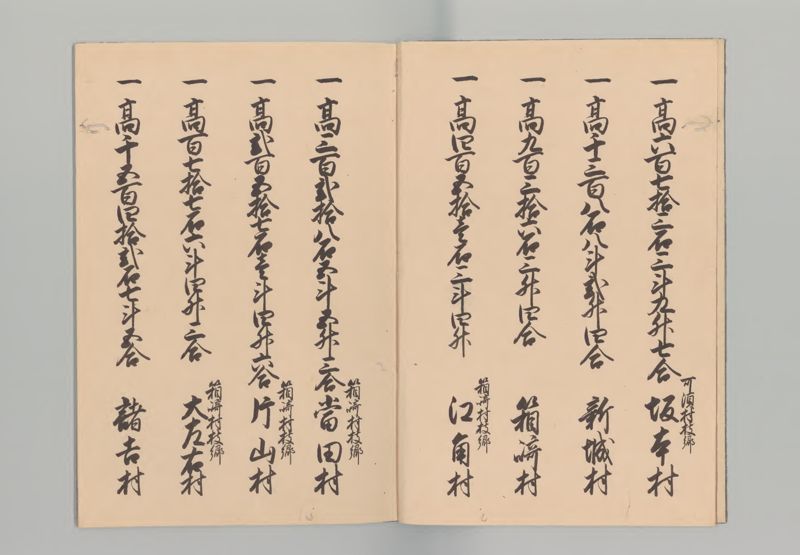 一 高六百七拾三石三斗九升七合 可須村枝郷 坂本村
一 高千三百八石八斗弐升四合 新城村
一 高九百三拾六石三升四合 箱崎村
一 高四百五拾壱石三斗四升 箱崎村枝郷 江角村
一 高三百弐拾八石五斗五升三合 箱崎村枝郷 當田村
一 高弐百五拾七石壱斗四升六合 箱崎村枝郷 片山村
一 高百七拾七石六斗四升三合 箱崎村枝郷 大左右村
一 高千五百四拾弐石七斗五合 諸吉村